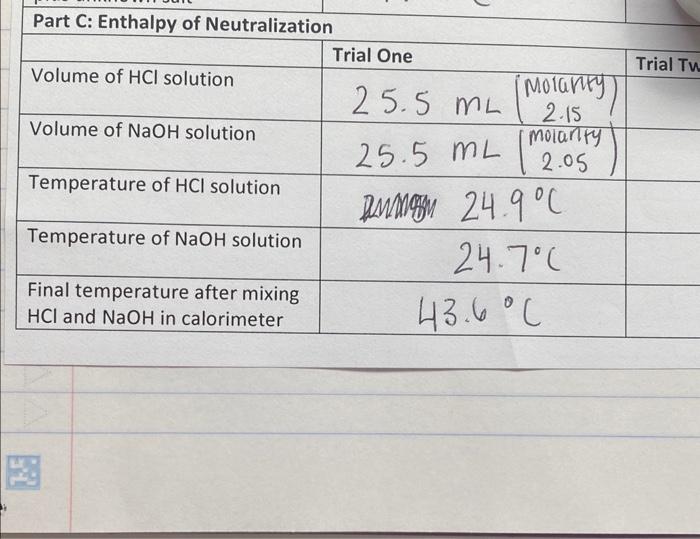 Part C: Enthalpy of Neutralization
Trial One
Trial Tw
Volume of HCl solution
25.5 mL (Molarity
2.15)
Volume of NaOH solution
25.5 mL (molarity
2.05)
Temperature of HCl solution
24.9°C
Temperature of NaOH solution
24.7°C
Final temperature after mixing
HCl and NaOH in calorimeter
43.6°C